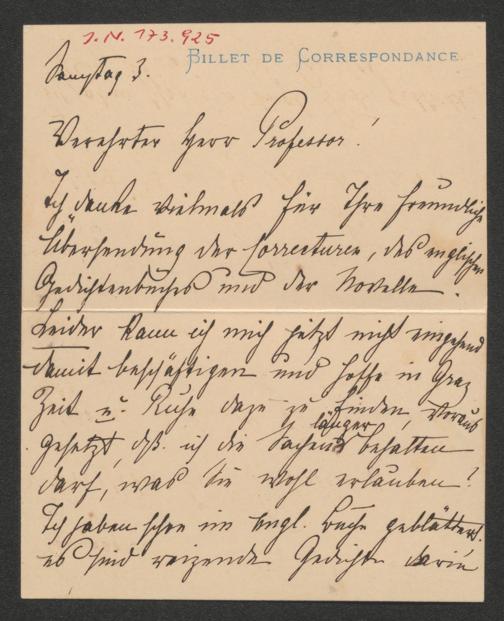 I.N. 173.925
BILLET DE CORRESPONDANCE.
Samstag 3.
Verehrter Herr Professor!
Ich danke vielmals für Ihre freundliche
Übersendung der Correcturen, des englischen
Gedichtenbuches und der Novelle.
Leider kann ich mich jetzt nicht eingehend
damit beschäftigen und hoffe in Graz
Zeit u. Ruhe dazu zu finden, voraus
gesetzt, dß ich die Sachen länger behalten
darf, was Sie wohl erlauben?
Ich haben schon im engl. Buche geblättert.
es sind reizende Gedichte darin